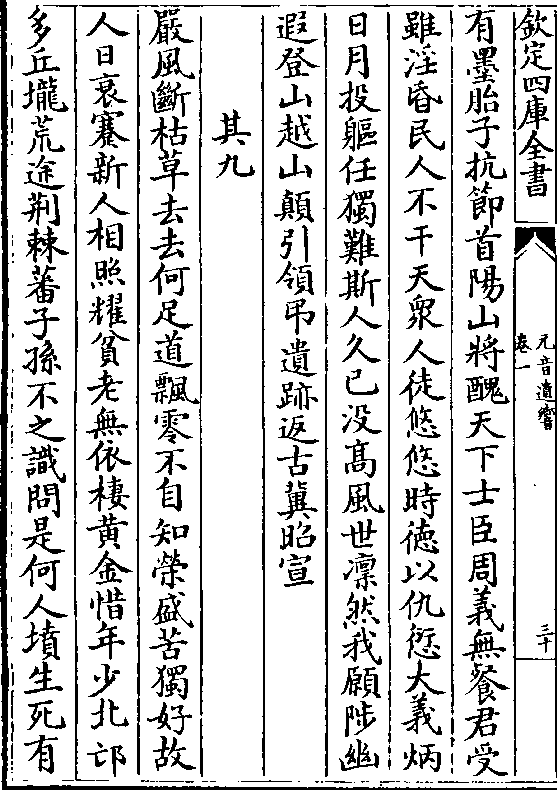 欽定四庫全書
元音遺響
卷一
三十
有墨胎子抗節首陽山將醜天下士臣周義無餐君受
雖淫昏民人不干天衆人徒悠悠時徳以仇愆大義炳
日月投軀任獨難斯人久已没髙風世凛然我願陟幽
遐登山越山顛引領弔遺跡返古冀昭宣
其九
嚴風斷枯草去去何足道飄零不自知榮盛苦獨好故
人日衰蹇新人相照耀貧老無依棲黄金惜年少北邙
多丘壠荒途荆棘蕃子孫不之識問是何人墳生死有